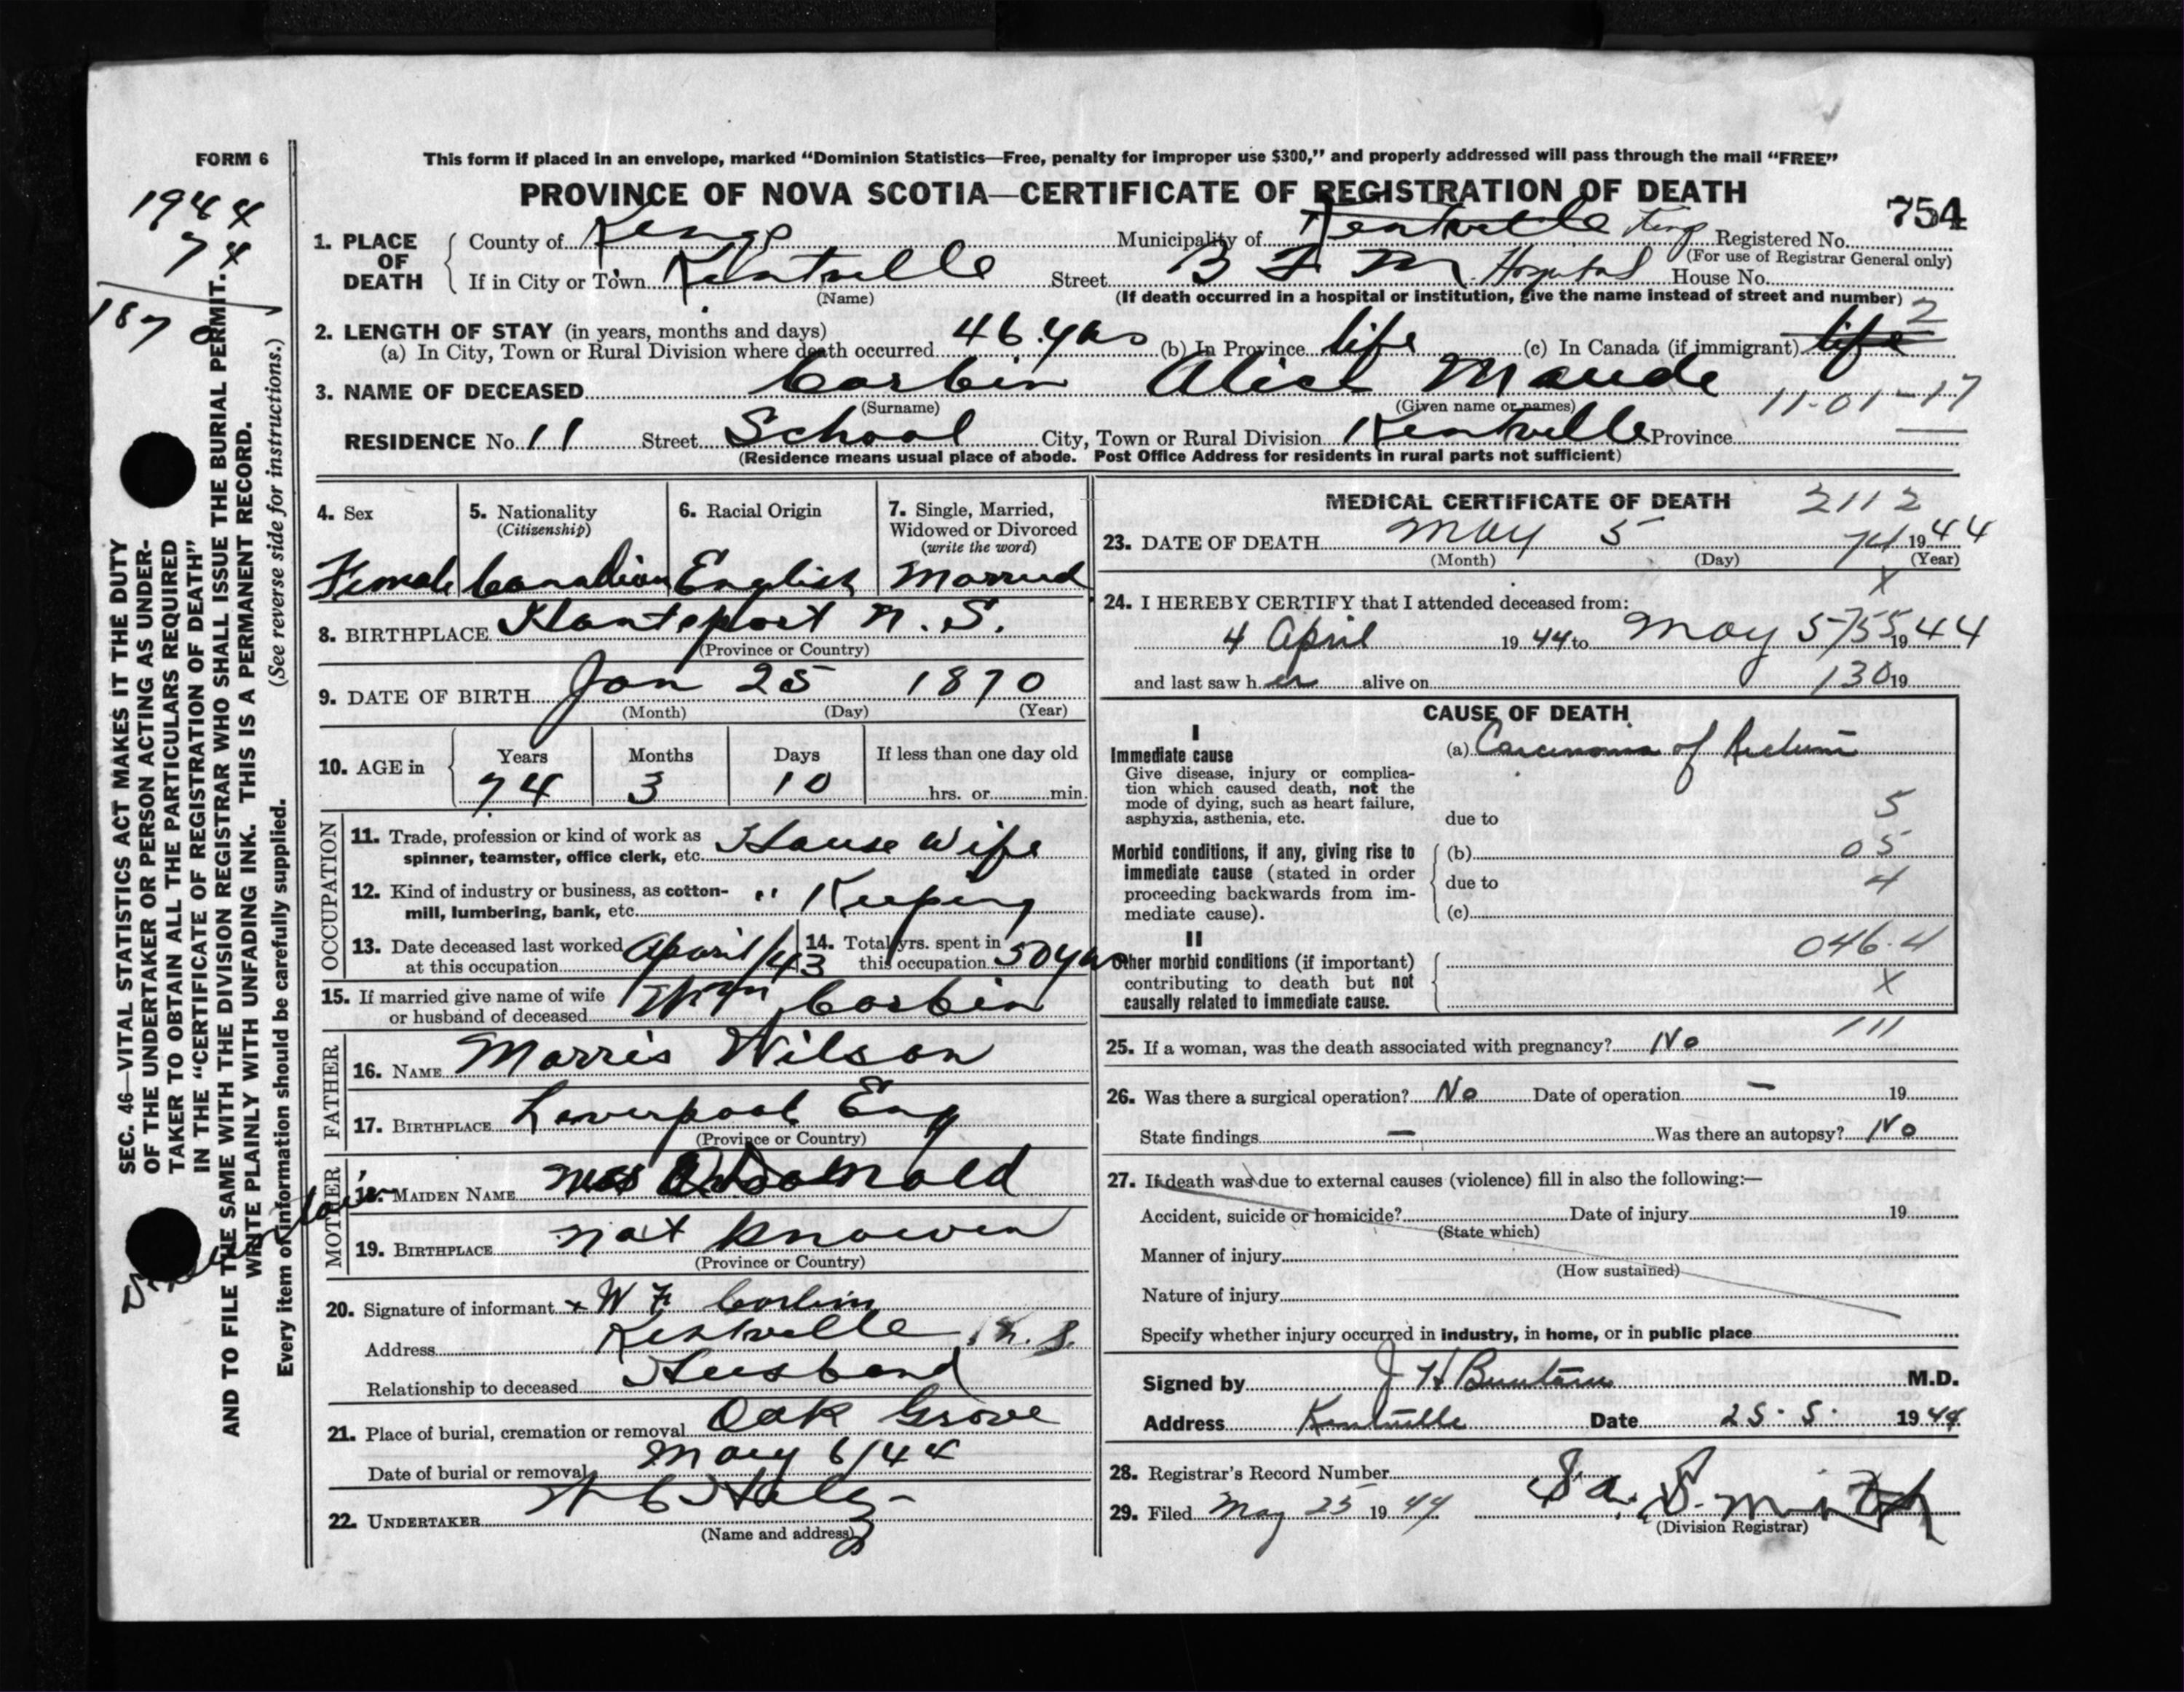 FORM 6
This form if placed in an envelope, marked “Dominion Statistics—Free, penalty for improper use $300,” and properly addressed will pass through the mail “FREE”
PROVINCE OF NOVA SCOTIA—CERTIFICATE OF REGISTRATION OF DEATH
754
1944
74
1870
1. PLACE OF DEATH
County of Kings Municipality of Kentville Kings Registered No.
(For use of Registrar General only)
If in City or Town Kentville Street B F M Hospital House No.
(Name) (If death occurred in a hospital or institution, give the name instead of street and number)
2. LENGTH OF STAY (in years, months and days)
(a) In City, Town or Rural Division where death occurred 46 yrs (b) In Province life (c) In Canada (if immigrant) life 2
3. NAME OF DECEASED Corbin Alice Maude
(Surname) (Given name or names) 11-01-17
RESIDENCE No. 11 Street School City, Town or Rural Division Kentville Province
(Residence means usual place of abode. Post Office Address for residents in rural parts not sufficient)
4. Sex
Female
5. Nationality
(Citizenship)
Canadian
6. Racial Origin
English
7. Single, Married,
Widowed or Divorced
(write the word)
Married
8. BIRTHPLACE Hantsport N. S.
(Province or Country)
9. DATE OF BIRTH Jan 25 1870
(Month) (Day) (Year)
10. AGE in
Years Months Days If less than one day old
74 3 10 hrs. or min.
OCCUPATION
11. Trade, profession or kind of work as
spinner, teamster, office clerk, etc. House Wife
12. Kind of industry or business, as cotton-
mill, lumbering, bank, etc. " Keeping
13. Date deceased last worked
at this occupation April/43
14. Total yrs. spent in
this occupation 50 yrs
15. If married give name of wife
or husband of deceased Wm Corbin
FATHER
16. NAME Morris Wilson
17. BIRTHPLACE Liverpool Eng
(Province or Country)
MOTHER
18. MAIDEN NAME
19. BIRTHPLACE not known
(Province or Country)
20. Signature of informant x W F Corbin
Address Kentville N. S.
Relationship to deceased Husband
21. Place of burial, cremation or removal Oak Grove
Date of burial or removal May 6/44
22. UNDERTAKER
(Name and address)
MEDICAL CERTIFICATE OF DEATH
2112
23. DATE OF DEATH May 5 74 1944
(Month) (Day) (Year)
X
24. I HEREBY CERTIFY that I attended deceased from:
4 April 1944 to May 5 755 1944
and last saw her alive on 130 19
CAUSE OF DEATH
I
Immediate cause
Give disease, injury or complica-
tion which caused death, not the
mode of dying, such as heart failure,
asphyxia, asthenia, etc.
(a) Carcinoma of Rectum
due to 5
Morbid conditions, if any, giving rise to
immediate cause (stated in order
proceeding backwards from im-
mediate cause).
(b) 05
due to 4
(c)
II
Other morbid conditions (if important)
contributing to death but not
causally related to immediate cause.
046.4
X
111
25. If a woman, was the death associated with pregnancy? No
26. Was there a surgical operation? No Date of operation — 19
State findings — Was there an autopsy? No
27. If death was due to external causes (violence) fill in also the following:—
Accident, suicide or homicide? Date of injury 19
(State which)
Manner of injury
(How sustained)
Nature of injury
Specify whether injury occurred in industry, in home, or in public place
Signed by J H M.D.
Address Kentville Date 25.5. 1944
28. Registrar's Record Number
29. Filed May 25 1944 Smith
(Division Registrar)
SEC. 46—VITAL STATISTICS ACT MAKES IT THE DUTY
OF THE UNDERTAKER OR PERSON ACTING AS UNDER-
TAKER TO OBTAIN ALL THE PARTICULARS REQUIRED
IN THE “CERTIFICATE OF REGISTRATION OF DEATH”
AND TO FILE THE SAME WITH THE DIVISION REGISTRAR WHO SHALL ISSUE THE BURIAL PERMIT.
WRITE PLAINLY WITH UNFADING INK. THIS IS A PERMANENT RECORD.
Every item of information should be carefully supplied. (See reverse side for instructions.)